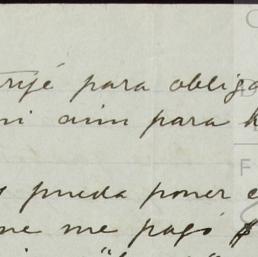 rijé para obliga
ni aun para h
pueda poner e
me pagó $